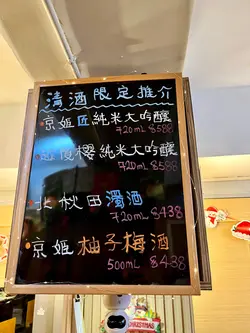 清酒限定推介
京姫匠純米大吟釀
720mL $588
櫻純米大吟釀
720mL $588
北秋田濁酒
720mL $438
京姫柚子梅酒
500mL $438
CHRISTMAS